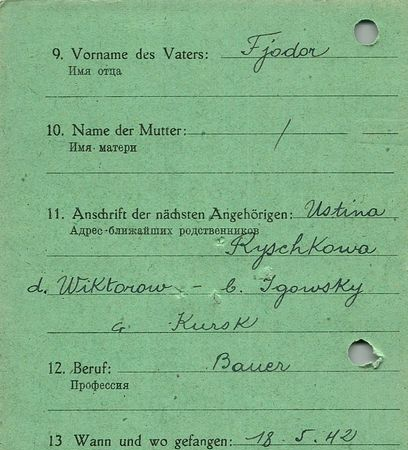 9. Vorname des Vaters: Fjodor
Имя отца
10. Name der Mutter: /
Имя матери
11. Anschrift der nächsten Angehörigen: Ustina
Адрес ближайших родственников
Ryschkowa
d. Wiktorow - b. Igowsky
G. Kursk
12. Beruf: Bauer
Профессия
13 Wann und wo gefangen: 18.5.42